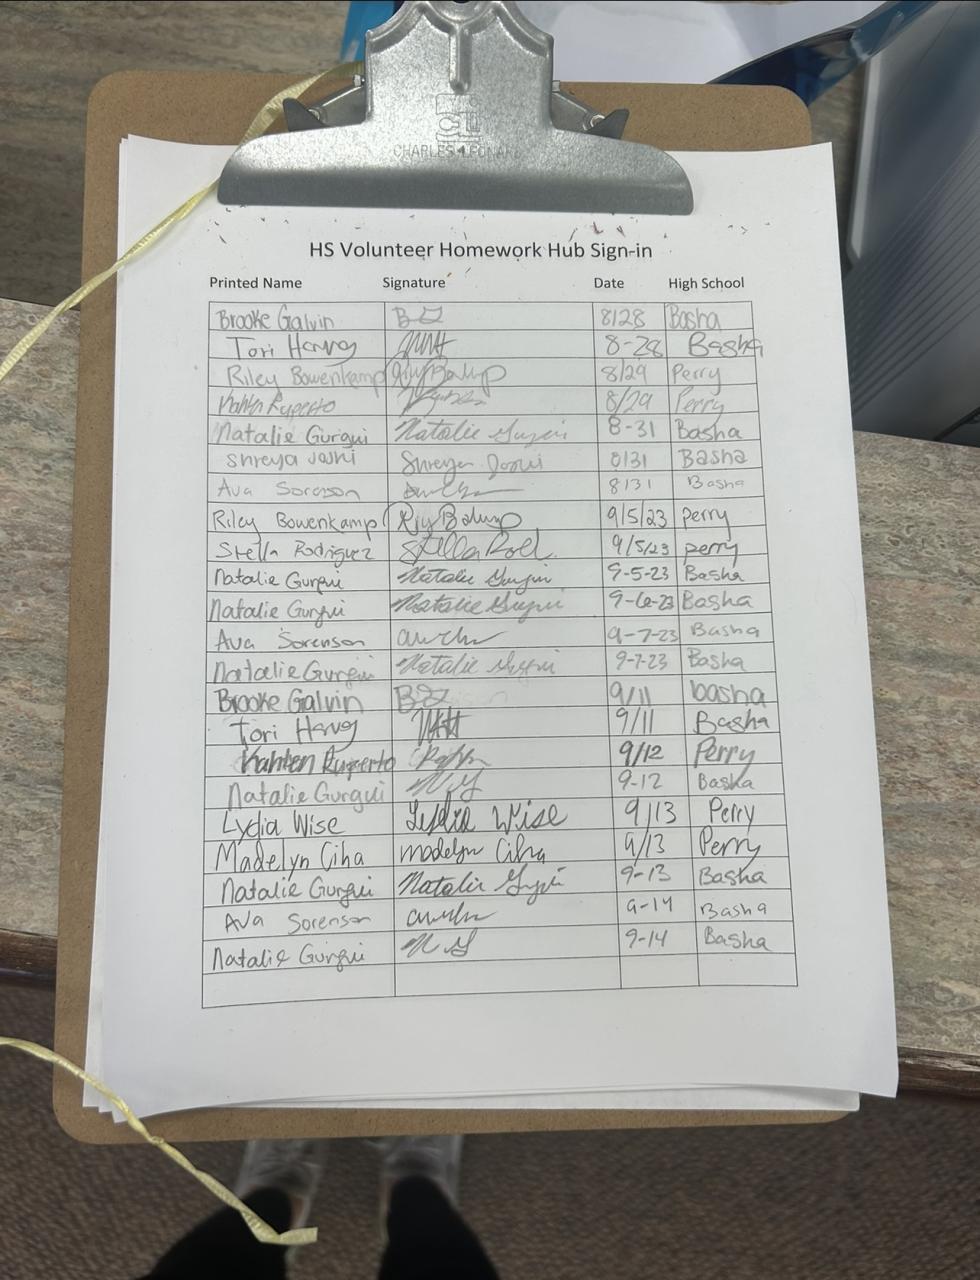 CHARLES LEONARD
HS Volunteer Homework Hub Sign-in
Printed Name Signature Date High School
Brooke Galvin BG 8/28 Basha
Tori Harvey 8-28 Basha
Riley Bowenkamp 8/29 Perry
Kahlen Ruperto 8/29 Perry
Natalie Gurgui Natalie Gurgui 8-31 Basha
Shreya Joshi Shreya Joshi 8/31 Basha
Ava Sorenson 8/31 Basha
Riley Bowenkamp 9/5/23 Perry
Stella Rodriguez Stella Rodr 9/5/23 perry
Natalie Gurgui Natalie Gurgui 9-5-23 Basha
Natalie Gurgui Natalie Gurgui 9-6-23 Basha
Ava Sorenson 9-7-23 Basha
Natalie Gurgui Natalie Gurgui 9-7-23 Basha
Brooke Galvin BG 9/11 basha
Tori Harvey 9/11 Basha
Kahlen Ruperto 9/12 Perry
Natalie Gurgui N G 9-12 Basha
Lydia Wise Lydia Wise 9/13 Perry
Madelyn Ciha madelyn Ciha 9/13 Perry
Natalie Gurgui Natalie Gurgui 9-13 Basha
Ava Sorenson 9-14 Basha
Natalie Gurgui N G 9-14 Basha